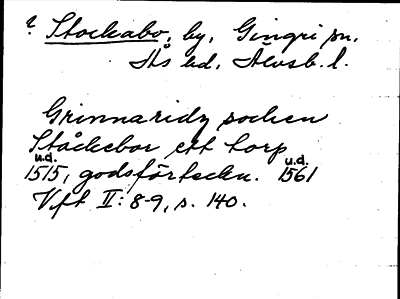 ? Stockabo, by, Gingri sn.
Ås hd, Älvsb. l.
Grinnaridz sochen
Ståckebor ett torp
u.d. u.d.
1515, godsförteckn. 1561
Vft II: 8-9, s. 140.